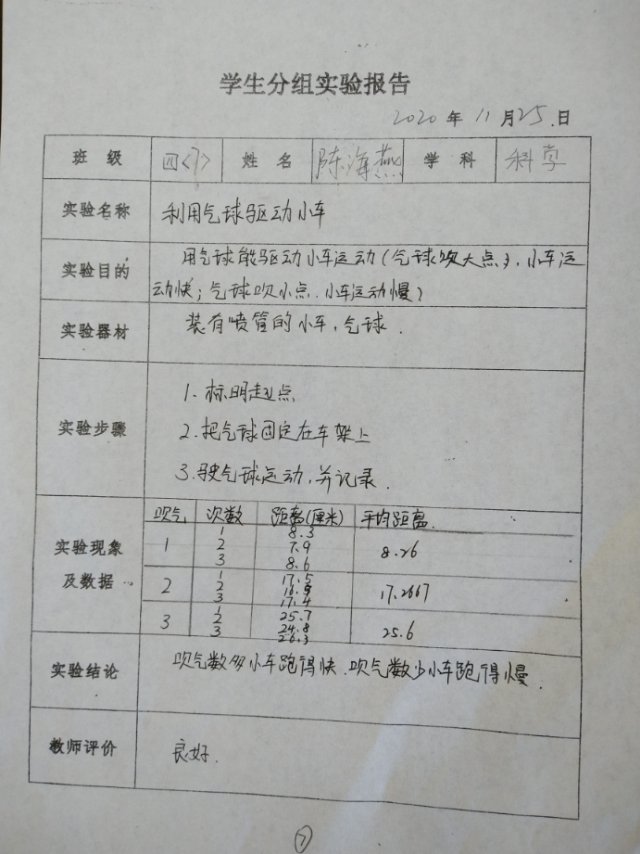 学生分组实验报告
2020年11月25日
班级 四<7> 姓名 陈海燕 学科 科学
实验名称 利用气球驱动小车
实验目的 用气球能驱动小车运动(气球吹大点,小车运
动快;气球吹小点.小车运动慢)
实验器材 装有喷管的小车,气球.
实验步骤
1.标明起点
2.把气球固定在车架上
3.驶气球运动,并记录.
实验现象及数据
吹气 次数 距离(厘米) 平均距离.
1 1 8.3
2 7.9 8.26
3 8.6
2 1 17.5
2 17.2667
3 17.4
3 1 25.7
2 24.8 25.6
3 26.3
实验结论 吹气数多小车跑得快.吹气数少小车跑得慢.
教师评价 良好.
7